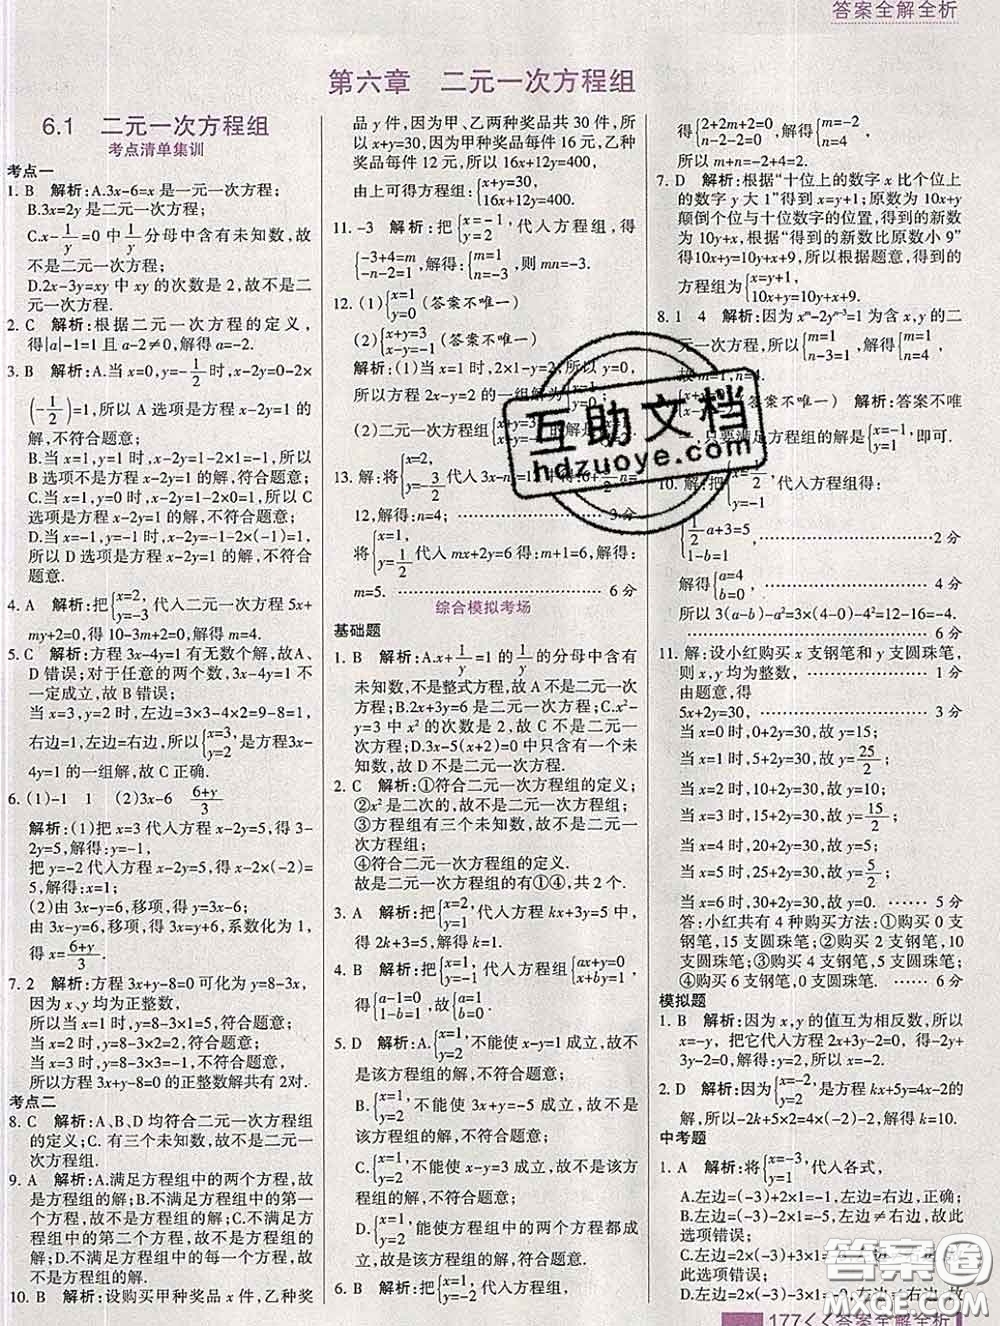 答案全解全析
第六章 二元一次方程组
6.1 二元一次方程组
考点清单集训
考点一
1. B 解析:A.3x-6=x 是一元一次方程;
B.3x=2y 是二元一次方程;
C.x-1/y=0 中 1/y 分母中含有未知数,故
不是二元一次方程;
D.2x-3y=xy 中 xy 的次数是 2,故不是二
元一次方程.
2. C 解析:根据二元一次方程的定义,
得|a|-1=1 且 a-2≠0,解得 a=-2.
3. B 解析:A.当 x=0,y=-1/2 时,x-2y=0-2×
(-1/2)=1,所以 A 选项是方程 x-2y=1 的
解,不符合题意;
B.当 x=1,y=1 时,x-2y=1-2×1=-1,所以
B 选项不是方程 x-2y=1 的解,符合题意;
C.当 x=1,y=0 时,x-2y=1-2×0=1,所以 C
选项是方程 x-2y=1 的解,不符合题意;
D.当 x=-1,y=-1 时,x-2y=-1-2×(-1)=1,
所以 D 选项是方程 x-2y=1 的解,不符合
题意.
4. A 解析:把{x=2, y=-3 代入二元一次方程 5x+
my+2=0,得 10-3m+2=0,解得 m=4.
5. C 解析:方程 3x-4y=1 有无数个解,故 A、
D 错误;对于任意的两个数,3x-4y=1 不
一定成立,故 B 错误;
当 x=3,y=2 时,左边=3×3-4×2=9-8=1,
右边=1,左边=右边,所以{x=3, y=2 是方程3x-
4y=1 的一组解,故 C 正确.
6. (1)-1 1 (2)3x-6 (6+y)/3
解析:(1)把 x=3 代入方程 x-2y=5,得 3-
2y=5,解得:y=-1,
把 y=-2 代入方程 x-2y=5,得 x-2×(-2)=
5,解得:x=1;
(2)由 3x-y=6,移项,得 y=3x-6,
由 3x-y=6,移项,得 3x=y+6,系数化为 1,
得 x=(6+y)/3.
7. 2 解析:方程 3x+y-8=0 可化为 y=8-3x,
因为 x、y 均为正整数,
所以当 x=1 时,y=8-3×1=5,符合题意;
当 x=2 时,y=8-3×2=2,符合题意;
当 x=3 时,y=8-3×3=-1,不符合题意;
所以方程 3x+y-8=0 的正整数解共有 2对.
考点二
8. C 解析:A、B、D 均符合二元一次方程组
的定义;C. 有三个未知数,故不是二元一
次方程组.
9. A 解析:A.满足方程组中的两个方程,故
是方程组的解;B.不满足方程组中的第一
个方程,故不是方程组的解;C.不满足方
程组中的第二个方程,故不是方程组的
解;D.不满足方程组中的每一个方程,故
不是方程组的解.
10. B 解析:设购买甲种奖品 x 件,乙种奖
品 y 件,因为甲、乙两种奖品共 30 件,所
以 x+y=30,因为甲种奖品每件 16 元,乙种
奖品每件 12 元,所以 16x+12y=400,
由上可得方程组:{x+y=30, 16x+12y=400.
11. -3 解析:把{x=-1, y=2 代入方程组,得
{-3+4=m -n-2=1,解得:{m=1 n=-3,则 mn=-3.
12. (1){x=1 y=0 (答案不唯一)
(2){x+y=3 x-y=-1 (答案不唯一)
解析:(1)当 x=1 时,2×1-y=2,所以 y=0,
所以方程 2x-y=2 的一组解为{x=1 y=0
(2)二元一次方程组{x+y=3
13. 解:将{x=2, y=-3/2 代入 3x-n
12,解得:n=4; 3 分
将{x=1, y=1/2 代入 mx+2y=6 得:m+1=6,解得:
m=5. 6 分
综合模拟考场
基础题
1. B 解析:A.x+1/y=1 的 1/y 的分母中含有
未知数,不是整式方程,故 A 不是二元一次
方程;B.2x+3y=6 是二元一次方程;C.x²-
y=3 中 x² 的次数是 2,故 C 不是二元一
次方程;D.3x-5(x+2)=0 中只含有一个未
知数,故 D 不是二元一次方程.
2. C 解析:①符合二元一次方程组的定义;
②x²是二次的,故不是二元一次方程组;
③方程组有三个未知数,故不是二元一
次方程组;
④符合二元一次方程组的定义.
故是二元一次方程组的有①④,共 2 个.
3. A 解析:把{x=2, y=1 代入方程 kx+3y=5 中,
得 2k+3=5,解得 k=1.
4. B 解析:把{x=1, y=-1 代入方程组{ax+y=0 x+by=1,
得{a-1=0 1-b=1,故{a=1, b=0.
5. D 解析:A.{x=1, y=2 不能使 x-y=1 成立,故不
是该方程组的解,不符合题意;
B.{x=-1, y=2 不能使 3x+y=-5 成立,故不是
该方程组的解,不符合题意;
C.{x=-1, y=2 不能使 x-y=3 成立,故不是该
方程组的解,不符合题意;
D.{x=-1, y=-2 能使方程组两个方程都成立,故
是该方程组的解,符合题意.
6. B 解析:把{x=1, y=2 代入方程组,
得{2+2m+2=0 n-2-2=0,解得{m=-2 n=4
所以 m+n=-2+4=2.
7. D 解析:根据“十位上的数字 x 比个位上
的数字 y 大 1”得到 x=y+1;原数为 10x+y
颠倒个位与十位数字的位置,得到的新数
为 10y+x,根据“得到的新数比原数小 9”
得到 10x+y=10y+x+9,所以根据题意,得到的
方程组为{x=y+1, 10x+y=10y+x+9.
8. 1 4 解析:因为 xᵐ-2yⁿ⁻³=1 为含 x,y 的二
元一次方程,所以{m=1 n-3=1,解得{m=1 n=4
故 m=1,n=4.
(答案不唯一) 解析:答案不唯
一,只要满足方程组的解是{x=-1, y=1,即可.
10. 解:把{ 代入方程组得:
{1/2a+3=5 1-b=1 2 分
解得{a=4 b=0 4 分
所以 3(a-b)-a²=3×(4-0)-4²=12-16=-4.
6 分
11. 解:设小红购买 x 支钢笔和 y 支圆珠笔,
则 x,y 均为整数, 1 分
由题意,得
5x+2y=30, 3 分
当 x=0 时,0+2y=30,故 y=15;
当 x=1 时,5+2y=30,故 y=25/2;
当 x=2 时,10+2y=30,故 y=10;
当 x=3 时,15+2y=30,故 y=15/2;
当 x=4 时,20+2y=30,故 y=5;
当 x=5 时,25+2y=30,故 y=5/2;
当 x=6 时,30+2y=30,故 y=0. 5 分
答:小红共有 4 种购买方法:①购买 0 支
钢笔,15 支圆珠笔;②购买 2 支钢笔,10
支圆珠笔;③购买 4 支钢笔,5 支圆珠笔;
④购买 6 支钢笔,0 支圆珠笔. 6 分
模拟题
1. B 解析:因为 x,y 的值互为相反数,所以
x=-y, 把它代入方程 2x+3y-2=0,得-2y+
3y-2=0,解得:y=2,故 x=-2.
2. D 解析:因为{x=-2, y=2 是方程 kx+5y=4x-2的
解,所以-2k+5×2=4×(-2)-2,解得 k=10.
中考题
1. A 解析:将{x=-3, y=1 代入各式,
A.左边=(-3)+2×1=-1,左边=右边,正确;
B.左边=(-3)-2×1=-5,左边≠右边,故此
选项错误;
C.左边=2×(-3)+3×1=-3,左边≠右边,故此
选项错误;
D.左边=2×(-3)-
177<<答案全解全析
互助文档
hdzuoye.com
答案圈
MXQE.COM